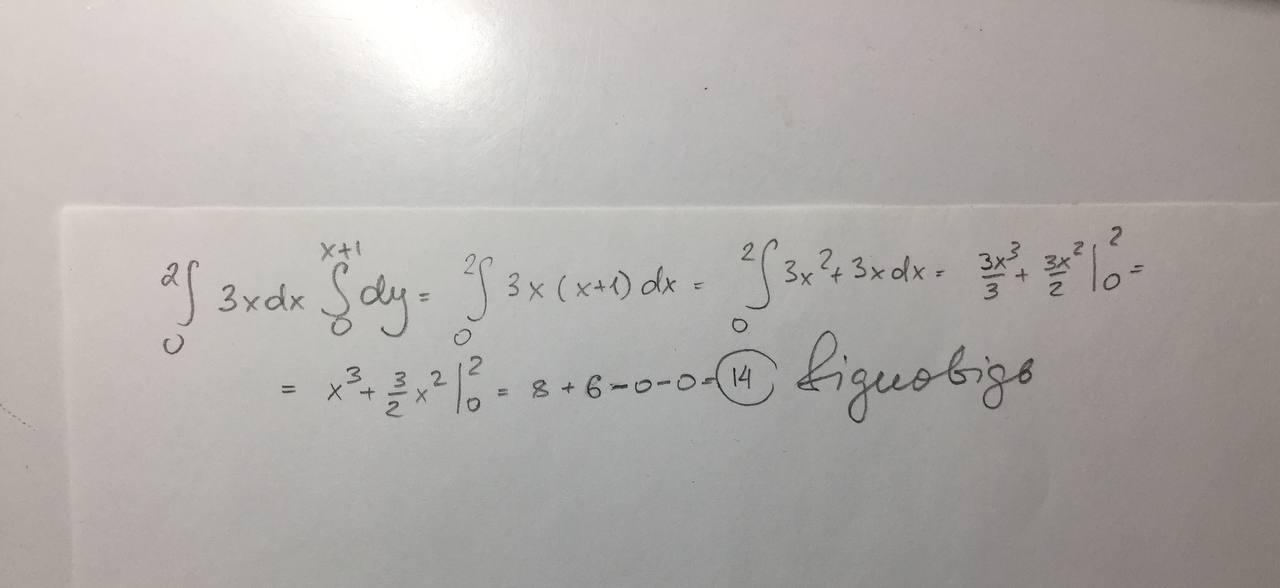 ∫₀² 3x dx ∫₀ˣ⁺¹ dy = ∫₀² 3x (x+1) dx = ∫₀² 3x² + 3x dx = 3x³/3 + 3x²/2 |₀² =
= x³ + 3/2 x² |₀² = 8 + 6 - 0 - 0 = 14 Відповідь